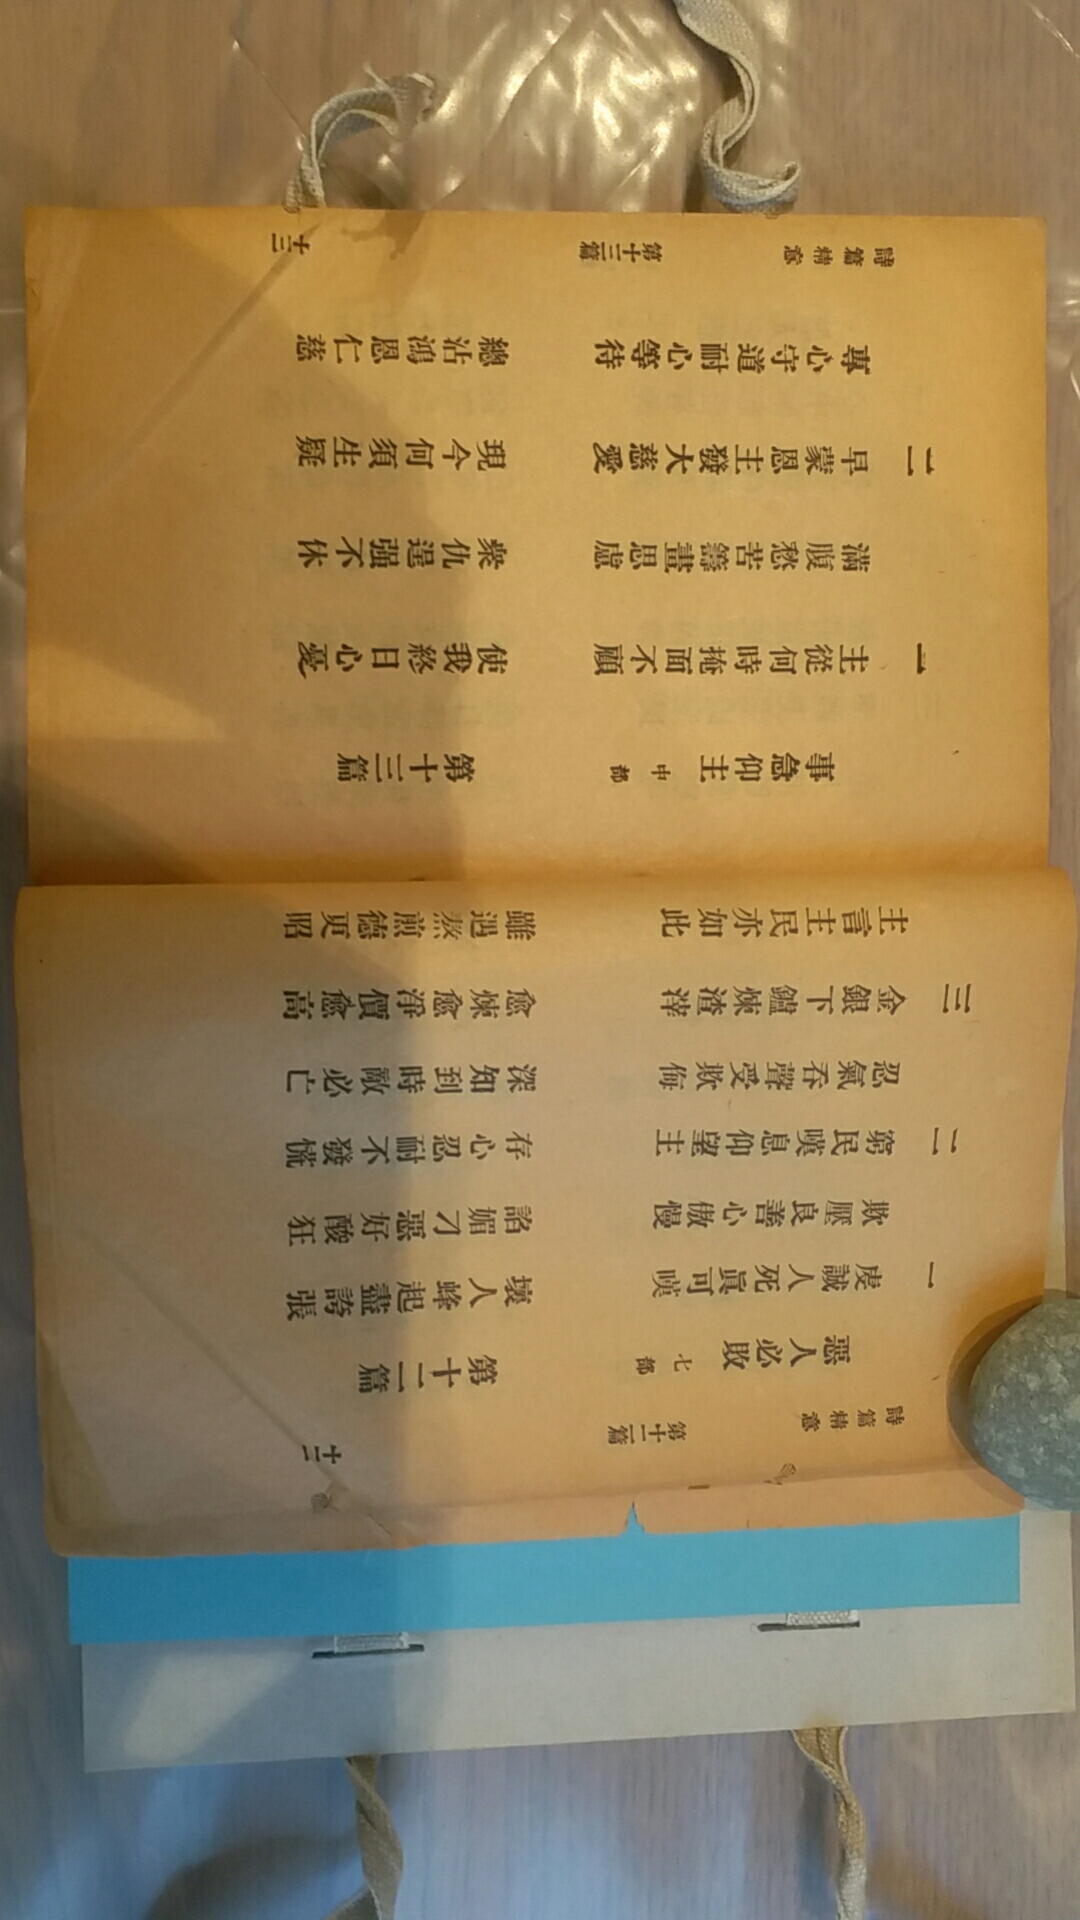 詩篇精意 第十二篇 十二
惡人必敗 七部 第十二篇
一 虔誠人死眞可嘆 壞人蜂起盡誇張
欺壓良善心傲慢 諂媚刁惡好酸狂
二 窮民嘆息仰望主 存心忍耐不發慌
忍氣吞聲受欺侮 深知到時敵必亡
三 金銀下鑪煉渣滓 愈煉愈淨價愈高
主言主民亦如此 雖遇熬煎德更昭
事急仰主 中部 第十三篇
一 主從何時掩面不顧 使我終日心憂
滿腹愁苦籌畫思慮 衆仇逞强不休
二 早蒙恩主發大慈愛 現今何須生疑
專心守道耐心等待 總沾鴻恩仁慈
詩篇精意 第十三篇 十三